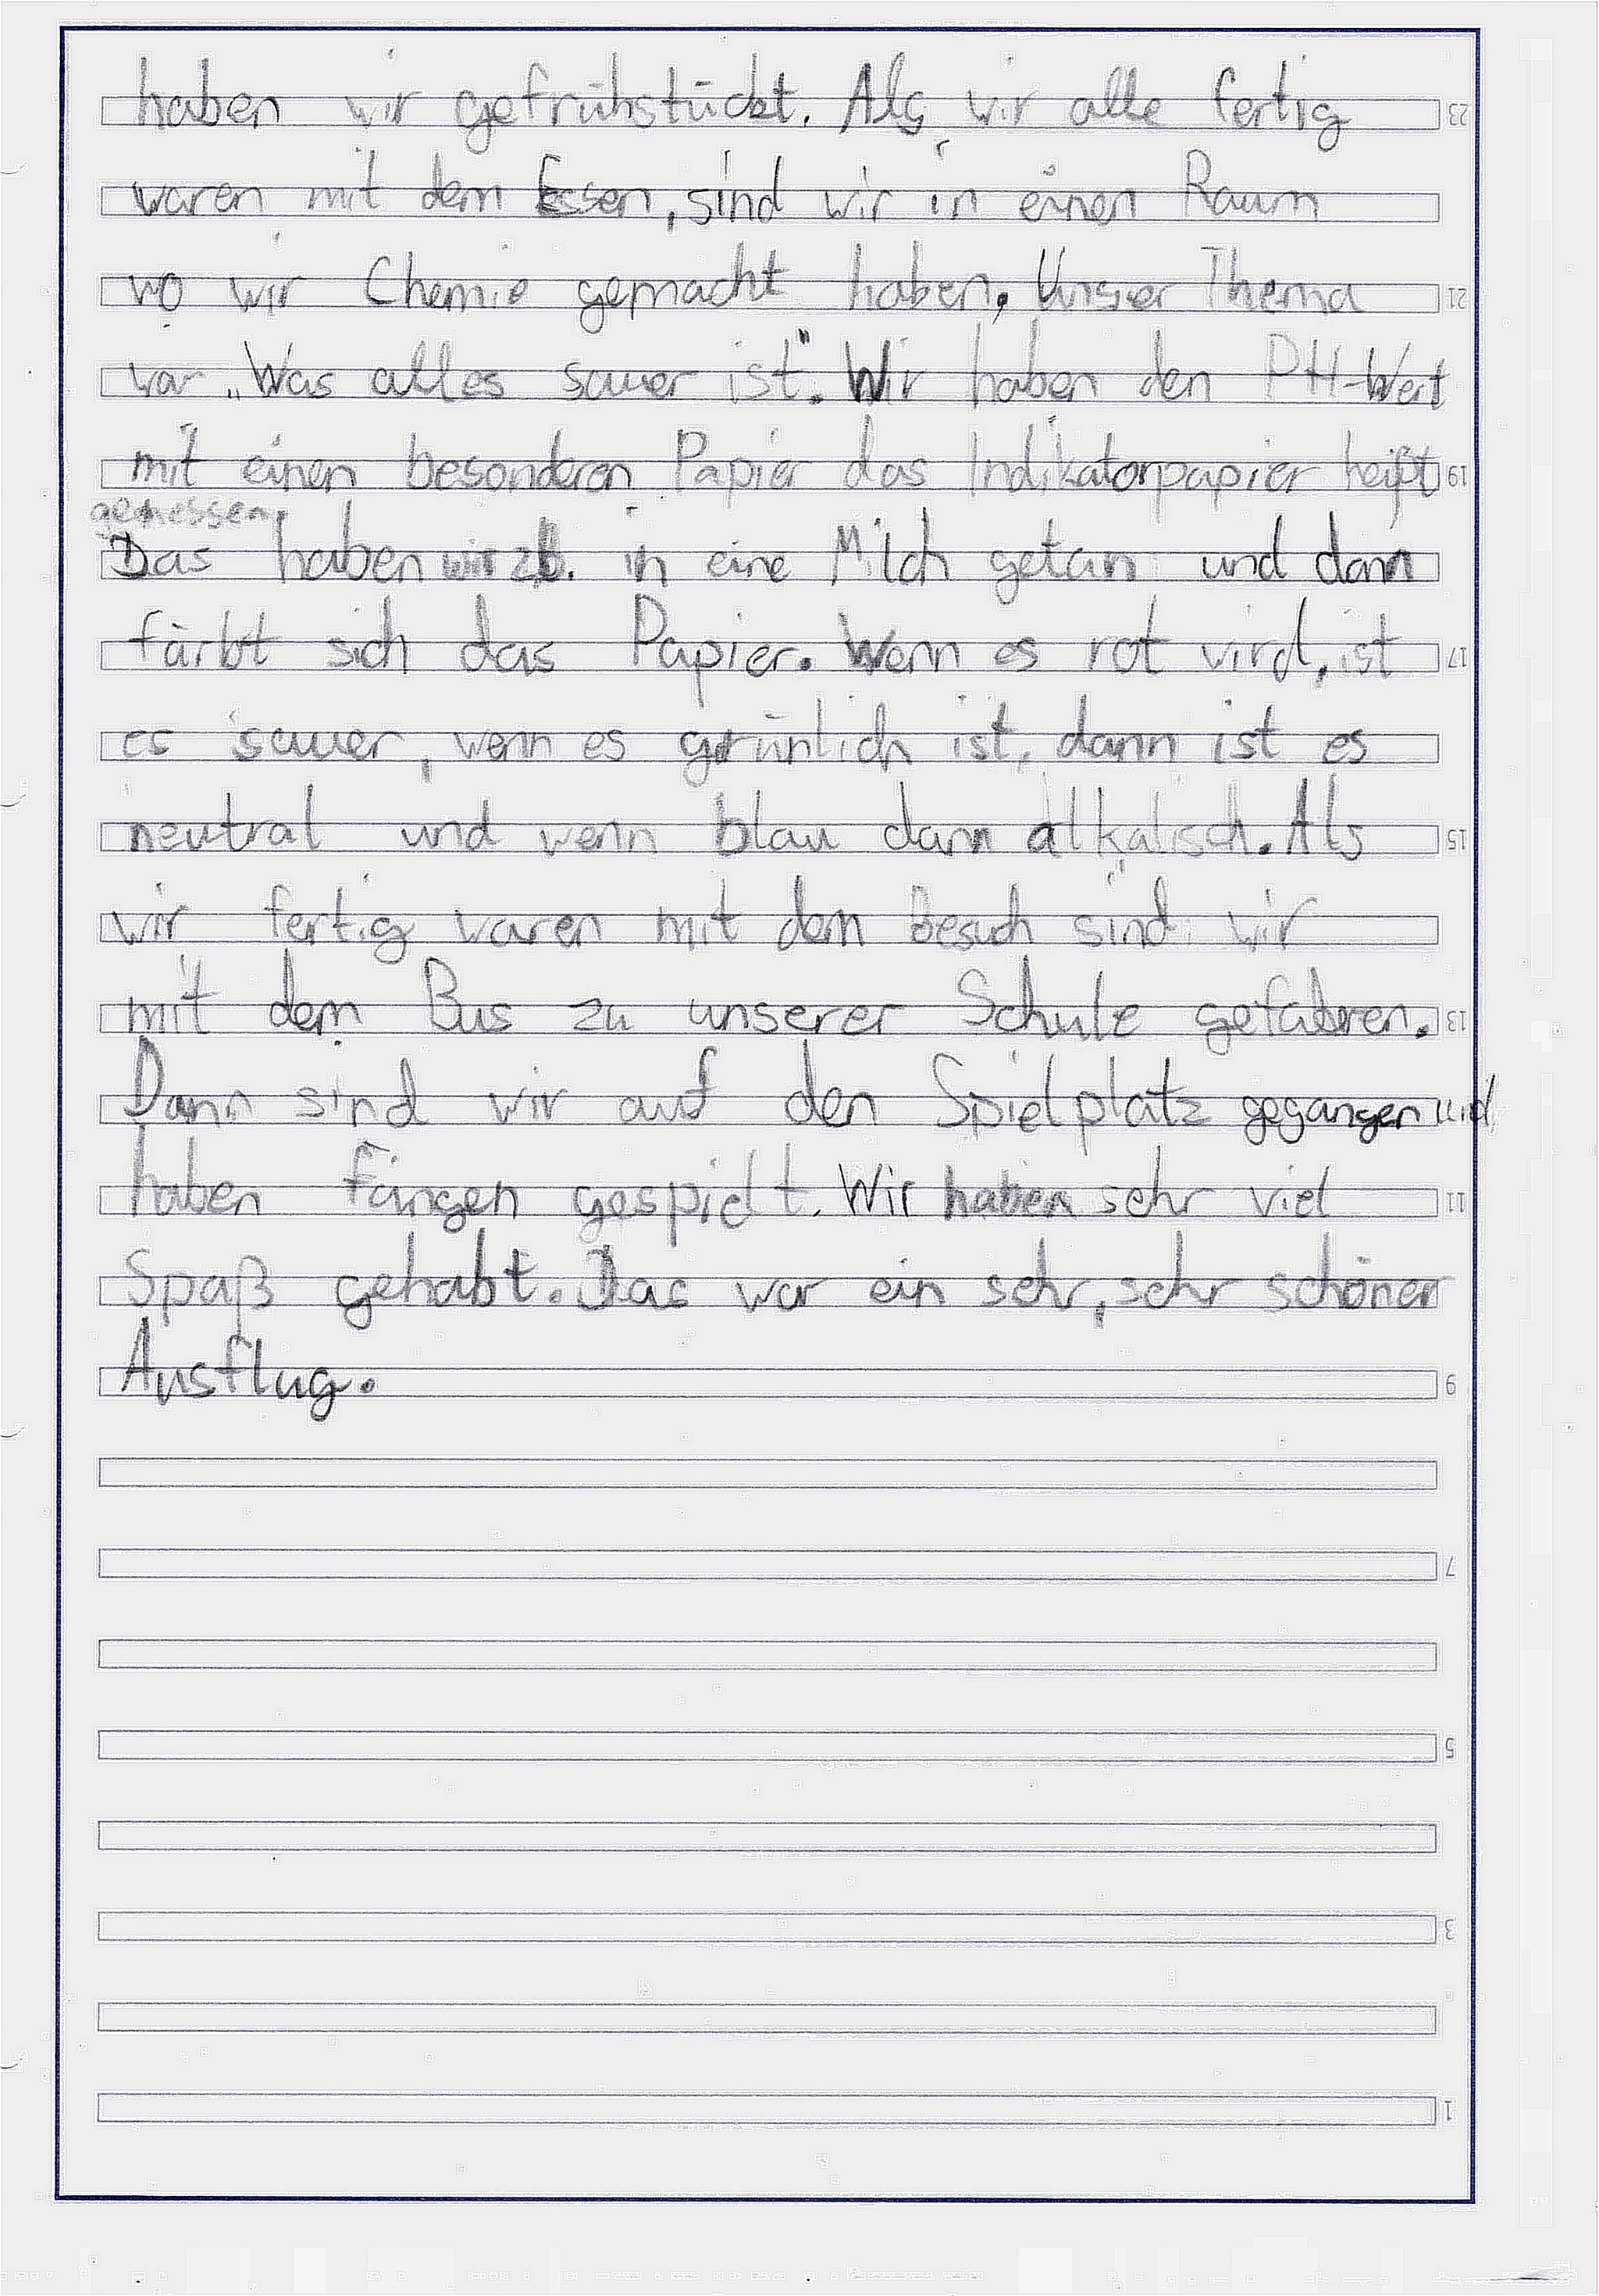 haben wir gefrühstückt. Als wir alle fertig 23
waren mit dem Essen, sind wir in einen Raum
wo wir Chemie gemacht haben. Unser Thema 21
war „Was alles sauer ist". Wir haben den PH-Wert
mit einen besonderen Papier das Indikatorpapier heißt 19
gemessen.
Das haben wir z.b. in eine Milch getan und dann
färbt sich das Papier. Wenn es rot wird, ist 17
es sauer, wenn es grünlich ist, dann ist es
neutral und wenn blau dann alkalisch. Als 15
wir fertig waren mit dem Besuch sind wir
mit dem Bus zu unserer Schule gefahren. 13
Dann sind wir auf den Spielplatz gegangen und
haben fangen gespielt. Wir haben sehr viel 11
Spaß gehabt. Das war ein sehr, sehr schöner
Ausflug. 9
7
5
3
1